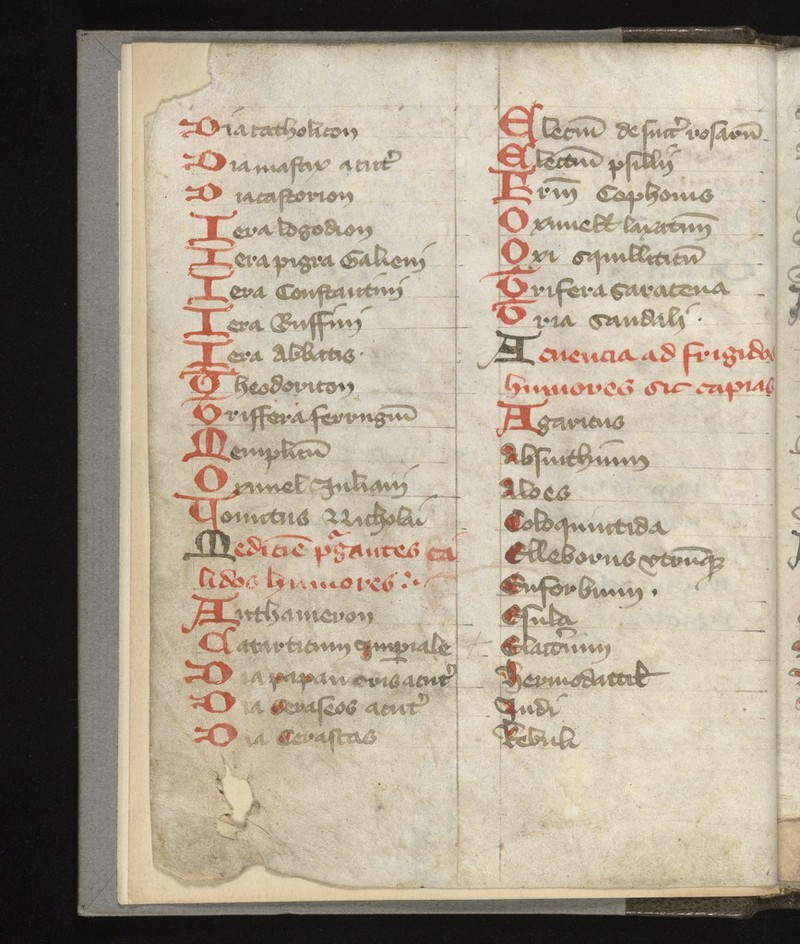 Diacatholicon
Diamastix acut᷑
Diacastorion
Iera logodion
Iera pigra Galieni
Iera Constantini
Iera Ruffini
Iera Abbatis·
Theodoricon
Triffera ferrugin̄
Memplicū
Oximel Juliani
Tonictus Nicholai
Medicīe pʳgantes ca
lidos humores :·
Anthameron
Catarticum imperiale
Dia papaueris acut᷑
Dia Ceraseos acut᷑
Dia Cerastas
Electuū de succ᷑ rosarū
Electuū psillii
Erm̄ Cophonis
Oximell laxatiuū
Oxi squilliticū
Trifera saratena
Tria sandali·
Acuencia ad frigidos
humores sic capias
Agaricus
Absinthium
Aloes
Coloquintida
Elleborus vtrūqꝫ
Euforbium·
Esula
Elactriū
hermodactil
Indi
kebuli